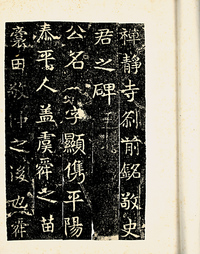 禅靜寺剎前銘敬史
君之碑
公名 字顯儁平陽
泰平人蓋虞舜之苗
裔田敬仲之後也